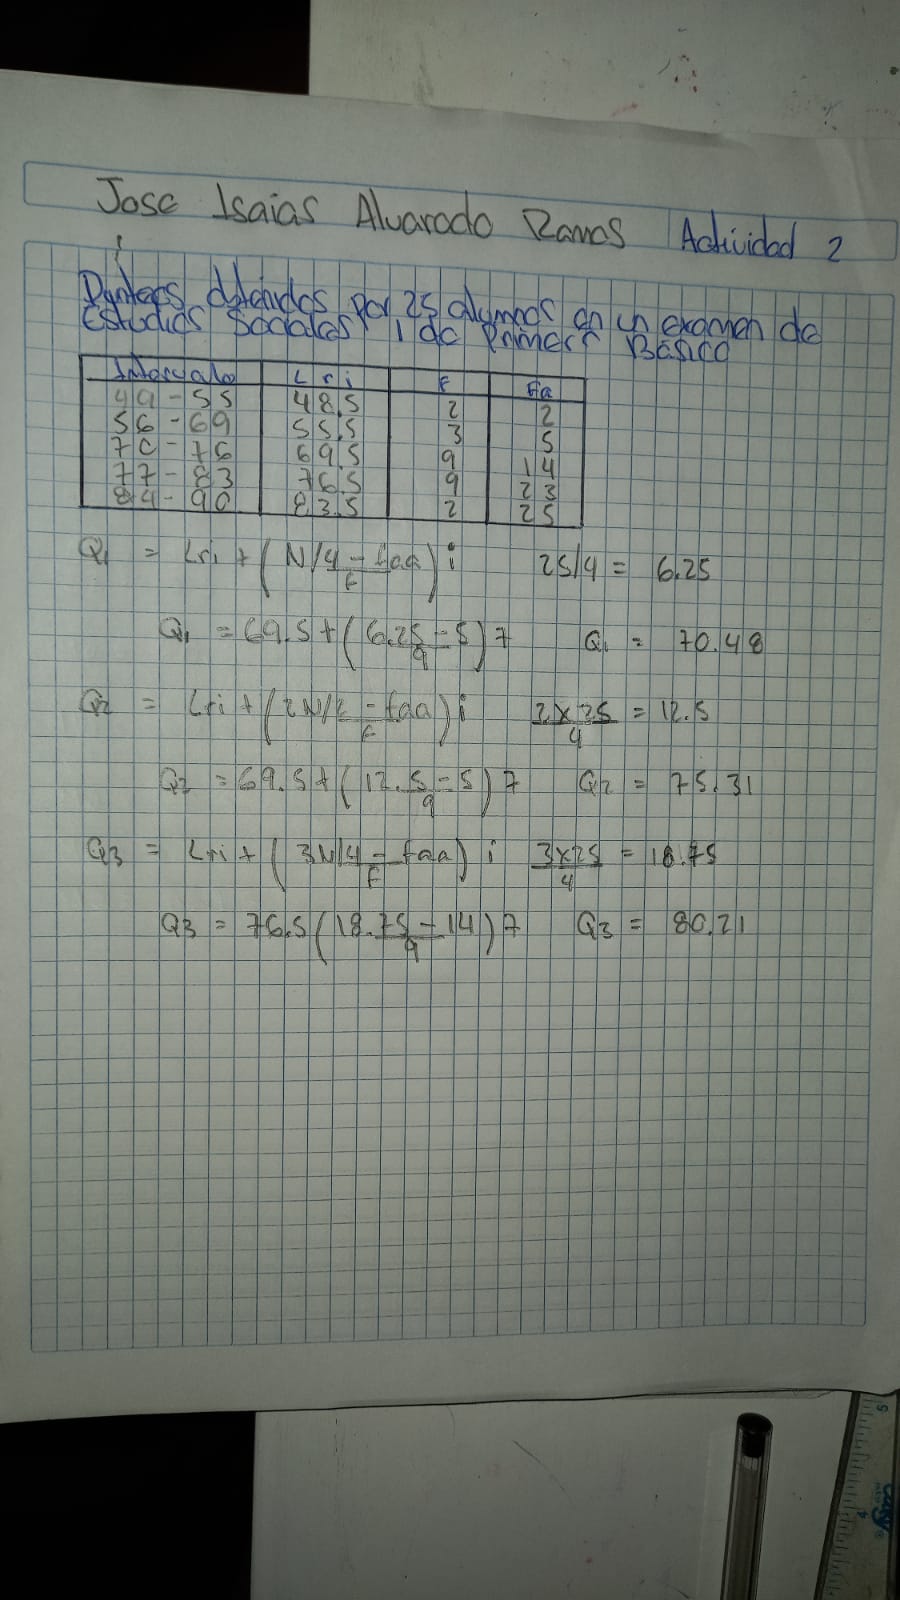 Jose Isaias Alvarado Ramos Actividad 2
Punteos obtenidos por 25 alumnos en un examen de
Estudios Sociales 1 de Primero Basico
Intervalo Lri F Fa
49-55 48.5 2 2
56-69 55.5 3 5
70-76 69.5 9 14
77-83 76.5 9 23
84-90 83.5 2 25
Q1 = Lri + (N/4 - faa / F) i 25/4 = 6.25
Q1 = 69.5 + (6.25 - 5 / 9) 7 Q1 = 70.48
Q2 = Lri + (2N/4 - faa / F) i 2x25/4 = 12.5
Q2 = 69.5 + (12.5 - 5 / 9) 7 Q2 = 75.31
Q3 = Lri + (3N/4 - faa / F) i 3x25/4 = 18.75
Q3 = 76.5 (18.75 - 14 / 9) 7 Q3 = 80.21
5
4